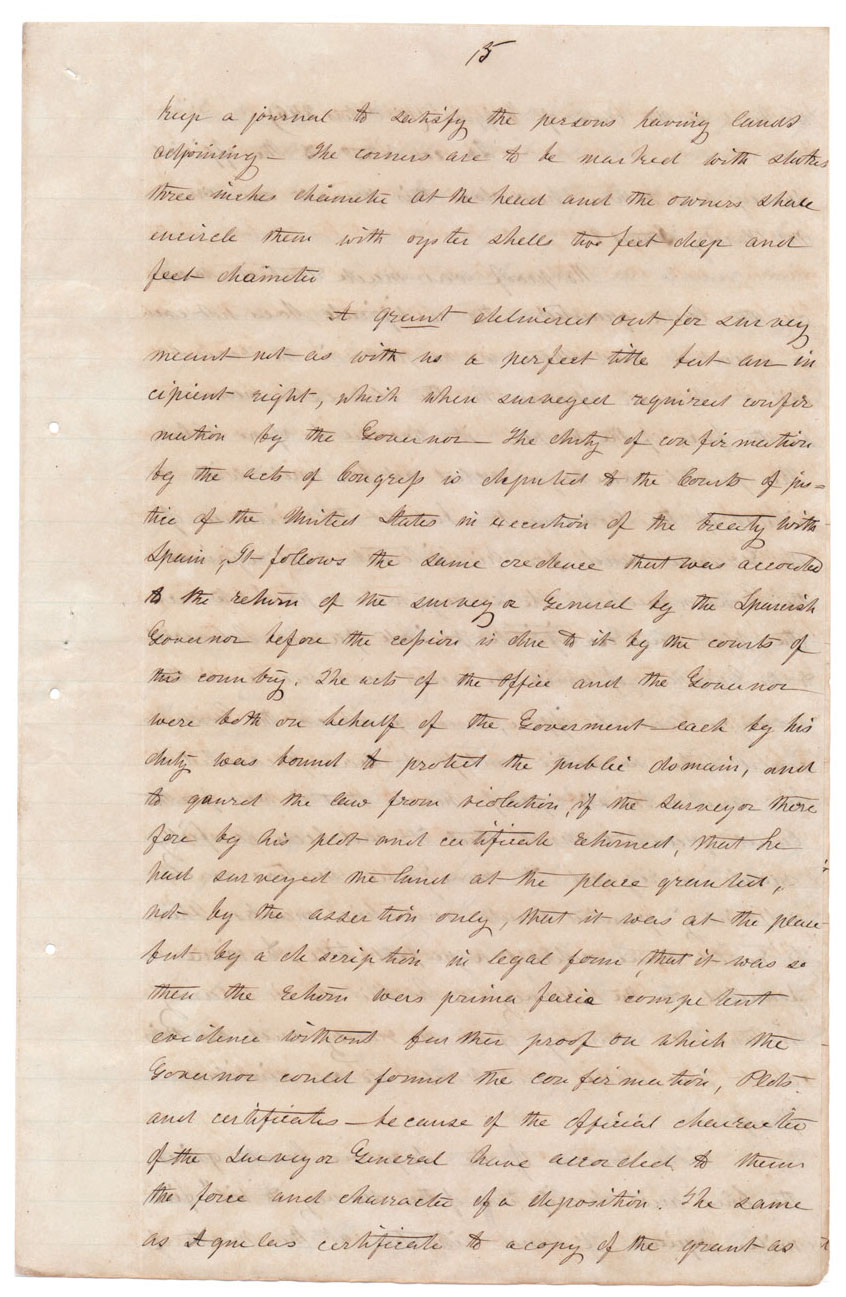 15
keep a journal to satisfy the persons having lands
adjoining – The corners are to be marked with stakes
three inches diameter at the head and the owners shall
encircle them with oyster shells two feet deep and
feet diameter
A grant delivered out for survey
meant not as with us a perfect title but an in
cipient right, which when surveyed required confir
mation by the Governor – The duty of confirmation
by the acts of Congress is deputed to the Courts of jus=
tice of the United States in execution of the treaty with
Spain, It follows the same credence that was accorded
to the return of the surveyor General by the Spanish
Governor before the cession is due to it by the courts of
this country. The acts of the office and the Governor
were both on behalf of the Goverment – each by his
duty was bound to protect the public domain, and
to gaurd the law from violation, if the surveyor there
fore by his plot and certificate returned, that he
had surveyed the land at the place granted,
not by the assertion only, that it was at the place
but by a description in legal form, that it was so
then the return was prima facia competent
evidence without further proof on which the
Governor could found the confirmation, Plots
and certificates – because of the official character
of the surveyor General have accorded to them
the force and character of a deposition. The same
as Aguelars certificate to a copy of the grant as